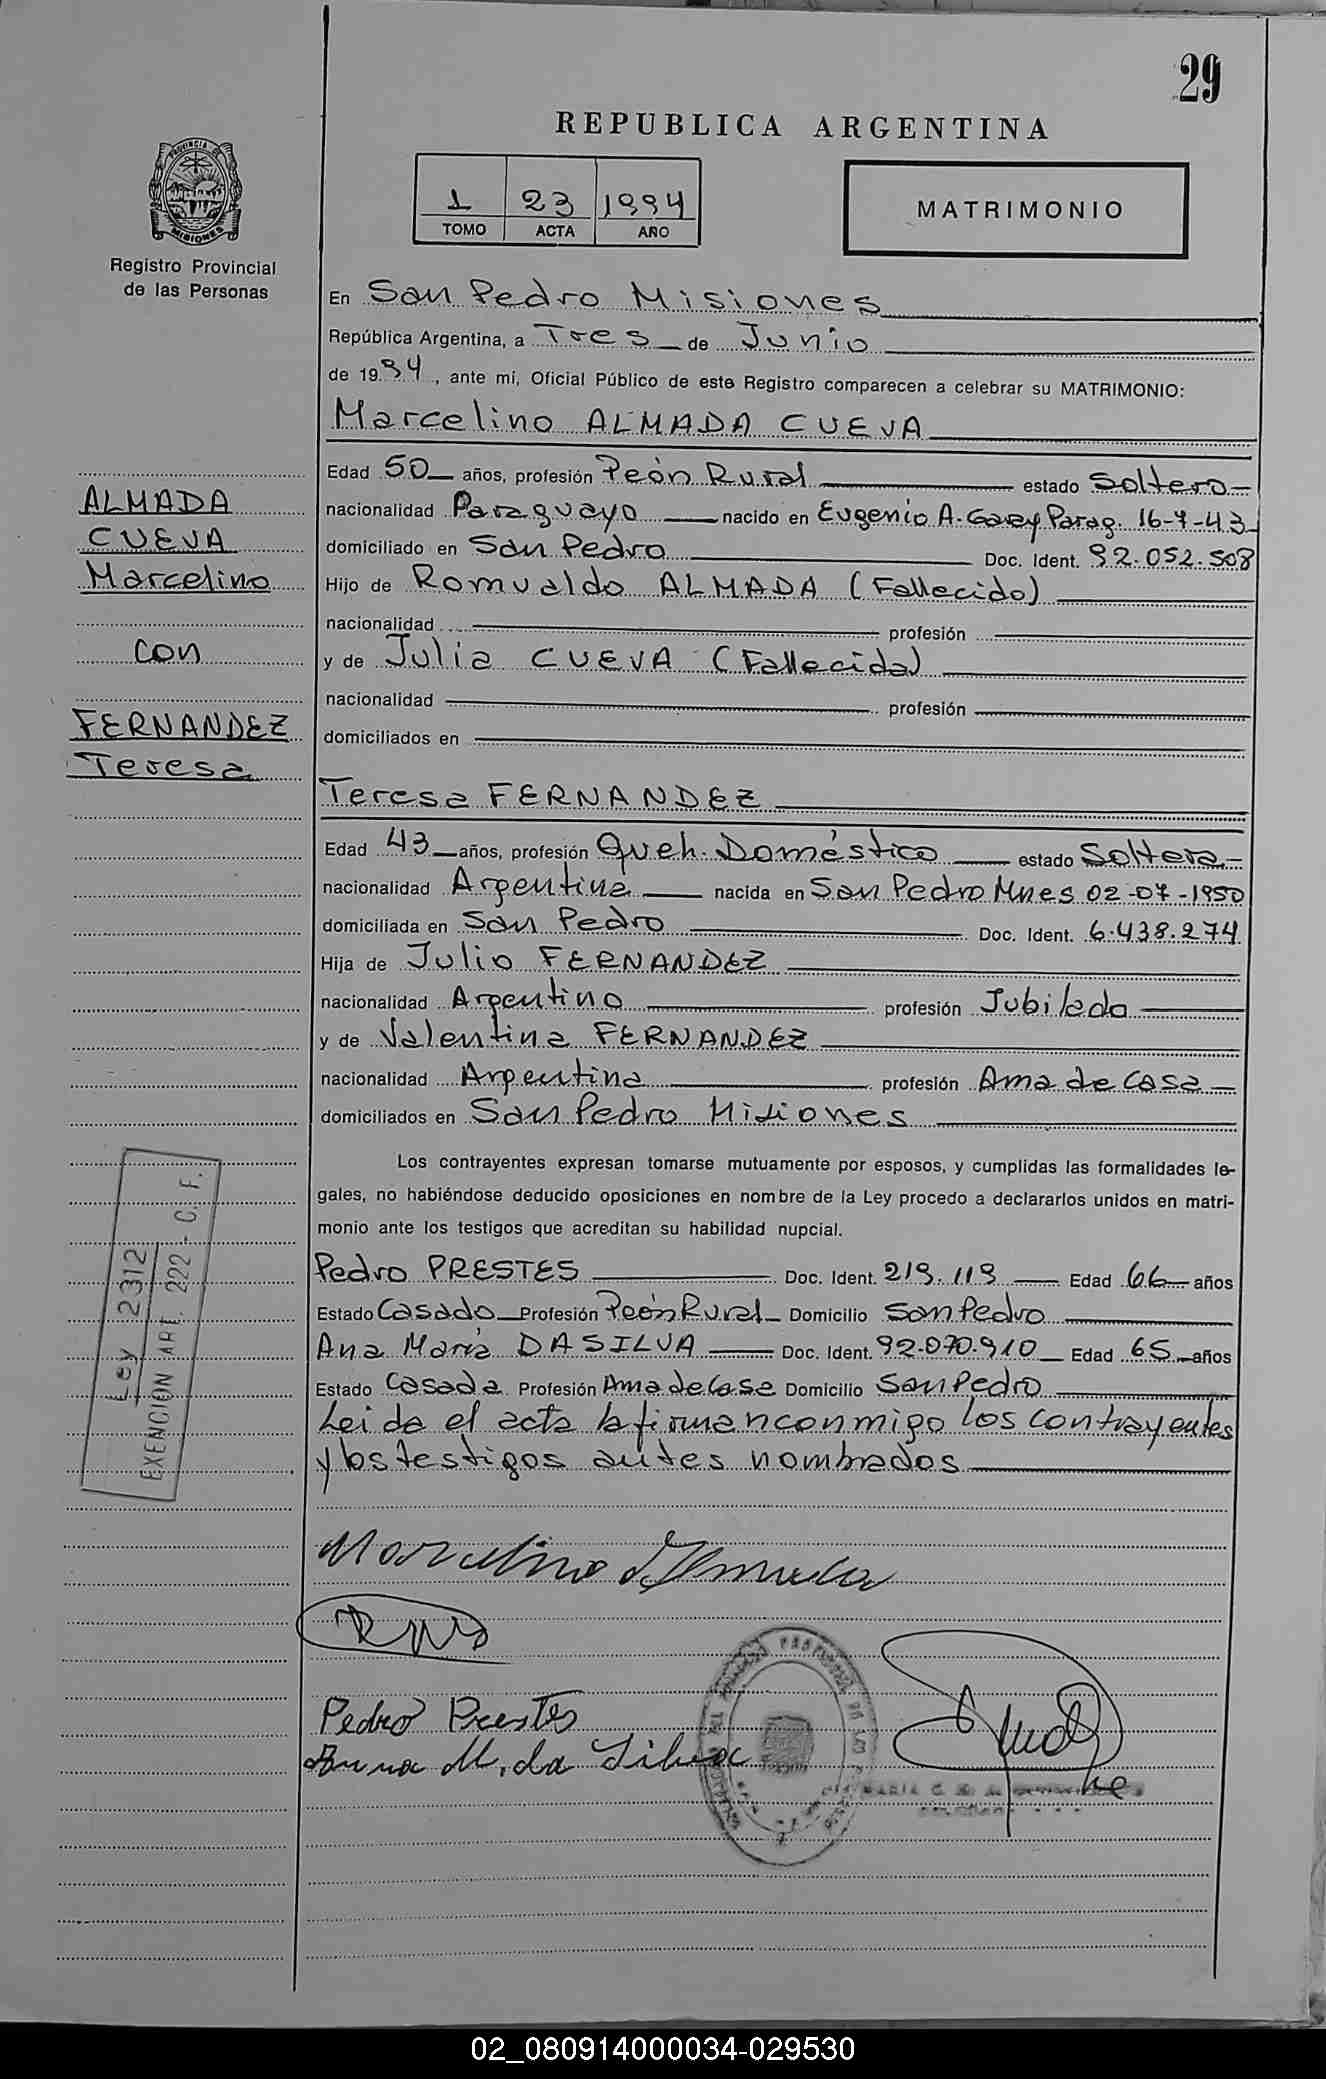 29
REPUBLICA ARGENTINA
PROVINCIA DE
MISIONES
Registro Provincial
de las Personas
1 23 1994
TOMO ACTA AÑO
MATRIMONIO
En San Pedro Misiones
República Argentina, a Tres de Junio
de 1994, ante mí, Oficial Público de este Registro comparecen a celebrar su MATRIMONIO:
Marcelino ALMADA CUEVA
ALMADA
CUEVA
Marcelino
con
FERNANDEZ
Teresa
Edad 50 años, profesión Peón Rural estado Soltero
nacionalidad Paraguayo nacido en Eugenio A. Garay Parag. 16-7-43
domiciliado en San Pedro Doc. Ident. 92.052.508
Hijo de Romualdo ALMADA (Fallecido)
nacionalidad profesión
y de Julia CUEVA (Fallecida)
nacionalidad profesión
domiciliados en
Teresa FERNANDEZ
Edad 43 años, profesión Queh. Doméstico estado Soltera
nacionalidad Argentina nacida en San Pedro Mnes 02-07-1950
domiciliada en San Pedro Doc. Ident. 6.438.274
Hija de Julio FERNANDEZ
nacionalidad Argentino profesión Jubilado
y de Valentina FERNANDEZ
nacionalidad Argentina profesión Ama de Casa
domiciliados en San Pedro Misiones
Los contrayentes expresan tomarse mutuamente por esposos, y cumplidas las formalidades le-
gales, no habiéndose deducido oposiciones en nombre de la Ley procedo a declararlos unidos en matri-
monio ante los testigos que acreditan su habilidad nupcial.
Ley 2312
EXENCION ART. 222 - C. F.
Pedro PRESTES Doc. Ident. 219.119 Edad 66 años
Estado Casado Profesión Peón Rural Domicilio San Pedro
Ana María DA SILVA Doc. Ident. 92.070.910 Edad 65 años
Estado Casada Profesión Ama de Casa Domicilio San Pedro
Leida el acta la firman conmigo los contrayentes
y los testigos antes nombrados
Marcelino Almada
Pedro Prestes
Anna M. da Silva
02_080914000034-029530